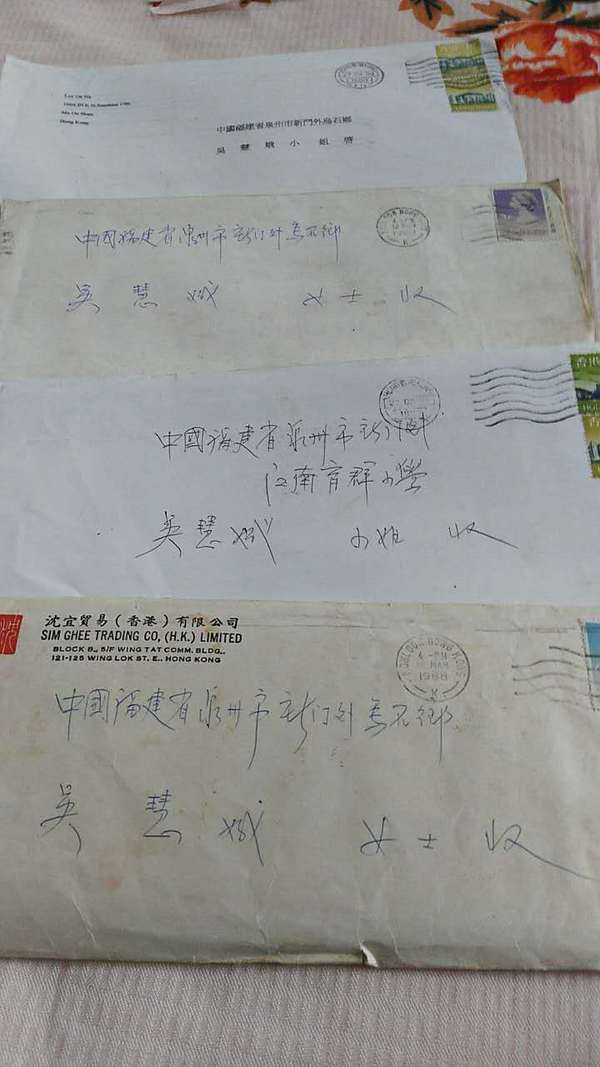 Ma On Shan
Hong Kong
中國福建省泉州市新門外烏石鄉
吳慧娥小姐啓
中国福建省泉州市新门外烏石鄉
吴慧娥 女士 收
中國福建省泉州市新门外
江南育群小學
吴慧娥 小姐 收
沈宜貿易(香港)有限公司
SIM GHEE TRADING CO, (H.K.) LIMITED
BLOCK B., 5/F WING TAT COMM. BLDG.,
121-125 WING LOK ST. E., HONG KONG
KOWLOON HONG KONG
4 - PM
MAR
1988
K
中國福建省泉州市新门外烏石鄉
吴慧娥 女士 收
香港